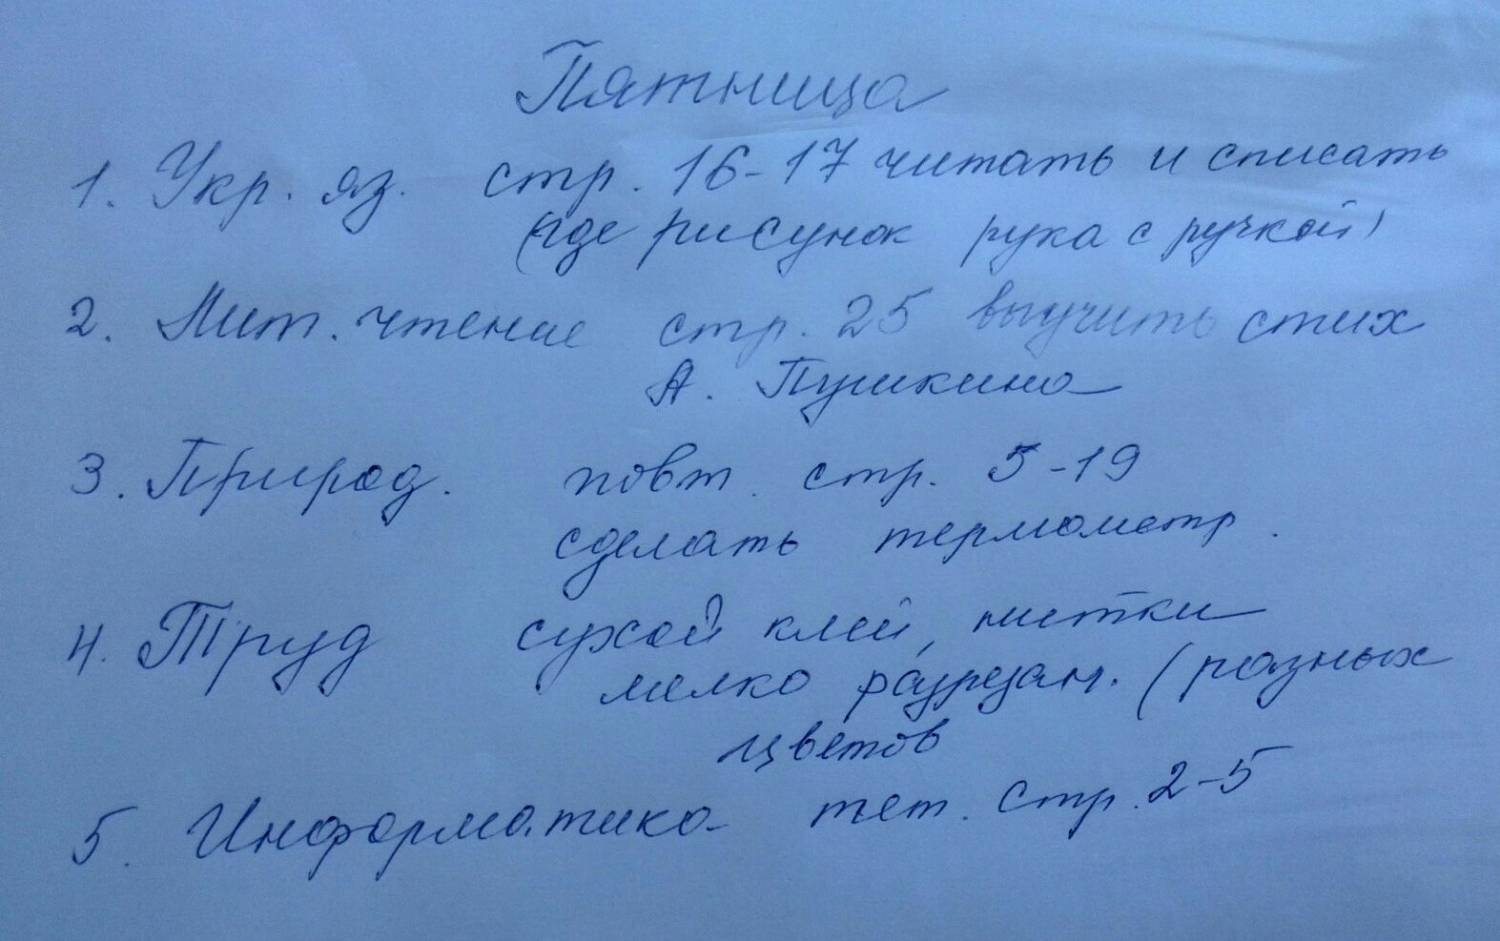 Пятница
1. Укр. яз. стр. 16-17 читать и списать
(где рисунок рука с ручкой)
2. Лит. чтение стр. 25 выучить стих
А. Пушкина
3. Природ. повт. стр. 5-19
сделать термометр.
4. Труд сухой клей, нитки
мелко разрезан. (разных
цветов
5. Информатика тет. стр. 2-5